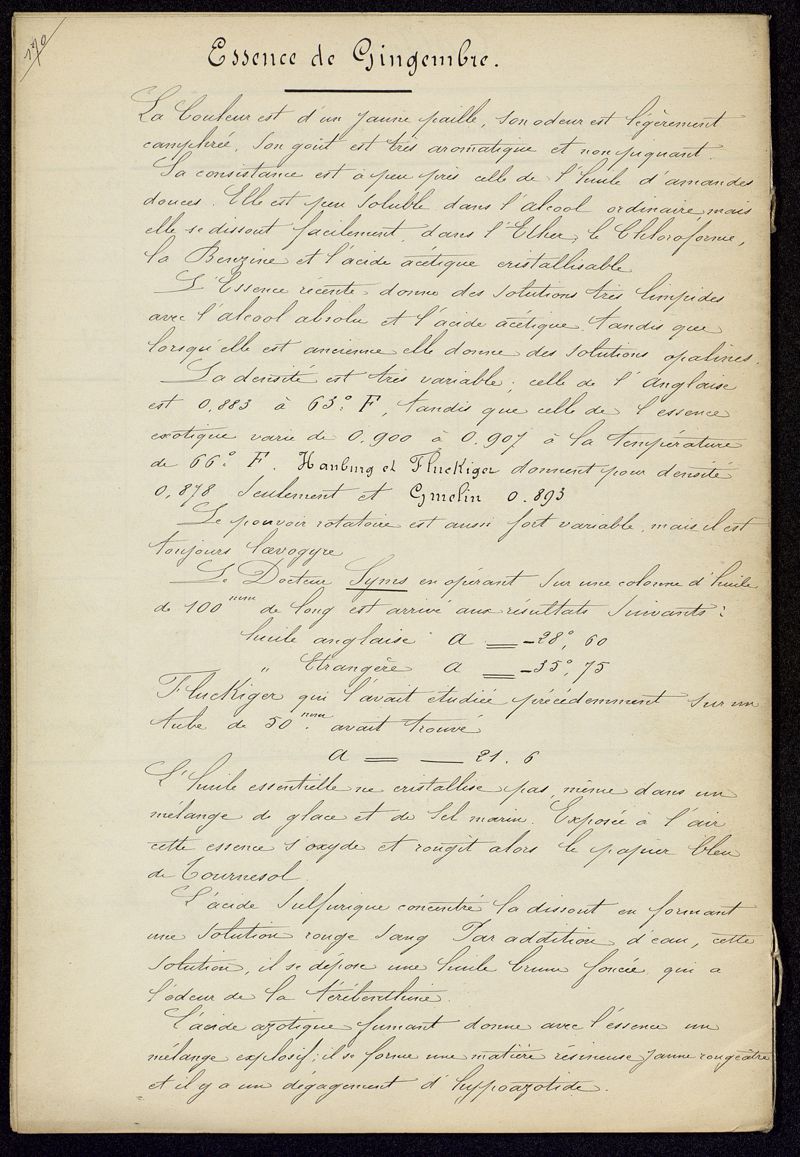 170
Essence de Gingembre.
La Couleur est d'un jaune paille, son odeur est légèrement
camphrée, Son goût est très aromatique et non piquant.
Sa consistance est à peu près celle de l'huile d'amandes
douces. Elle est peu soluble dans l'alcool ordinaire mais
elle se dissout facilement dans l'Ether, le Chloroforme,
la Benzine et l'acide acétique cristallisable
L'Essence récente donne des solutions très limpides
avec l'alcool absolu et l'acide acétique, tandis que
lorsqu'elle est ancienne elle donne des solutions opalines.
La densité est très variable; celle de l'Anglaise
est 0,883 à 63° F, tandis que celle de l'essence
exotique varie de 0.900 à 0.907 à la température
de 66° F. Hanburg et Fluckiger donnent pour densité
0,878 Seulement et Gmelin 0.893
Le pouvoir rotatoire est aussi fort variable, mais il est
toujours lævogyre
Le Docteur Syms en opérant sur une colonne d'huile
de 100 mm de long est arrivé aux résultats Suivants:
huile anglaise a = -28°, 60
" Etrangère a = -35°, 75
Fluckiger qui l'avait étudiée précédemment sur un
tube de 50 mm avait trouvé
a = — 21.6
L'huile essentielle ne cristallise pas, même dans un
mélange de glace et de Sel marin. Exposée à l'air
cette essence s'oxyde et rougit alors le papier bleu
de Tournesol.
L'acide Sulfurique concentré la dissout en formant
une solution rouge sang Par addition d'eau, cette
solution, il se dépose une huile brune foncée qui a
l'odeur de la térébenthine.
L'acide azotique fumant donne avec l'essence un
mélange explosif; il se forme une matière résineuse jaune rougeâtre
et il y a un dégagement d'hyppoazotide.